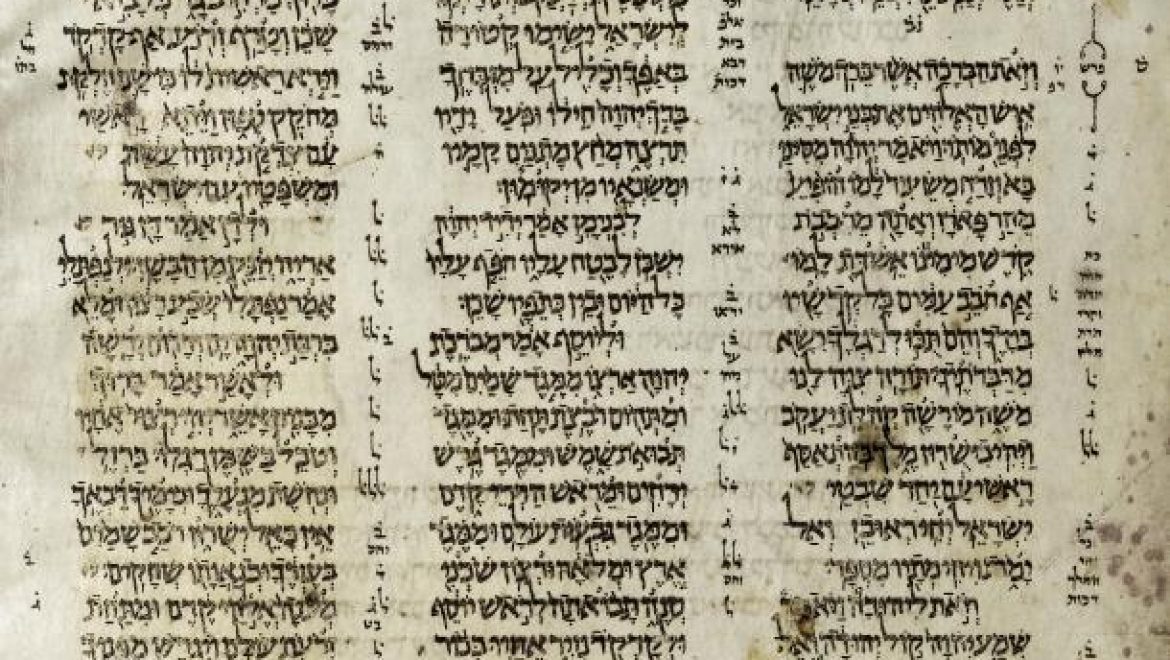 וזאת הברכה אשר ברך משה
איש האלהים את בני ישראל
לפני מותו ויאמר יהוה מסיני
בא וזרח משעיר למו הופיע
מהר פארן ואתה מרבבת
קדש מימינו אשדת למו
אף חבב עמים כל קדשיו
בידך והם תכו לרגלך ישא
מדברתיך תורה צוה לנו
משה מורשה קהלת יעקב
ויהי בישרון מלך בהתאסף
ראשי עם יחד שבטי
ישראל יחי ראובן ואל
ימת ויהי מתיו מספר
וזאת ליהודה ויאמר
שמע יהוה קול יהודה ואל
לישראל ישימו קטורה
באפך וכליל על מזבחך
ברך יהוה חילו ופעל ידיו
תרצה מחץ מתנים קמיו
ומשנאיו מן יקומון
לבנימן אמר ידיד יהוה
ישכן לבטח עליו חפף עליו
כל היום ובין כתפיו שכן
וליוסף אמר מברכת
יהוה ארצו ממגד שמים מטל
ומתהום רבצת תחת וממגד
תבואת שמש וממגד גרש
ירחים ומראש הררי קדם
וממגד גבעות עולם וממגד
ארץ ומלאה ורצון שכני
סנה תבואתה לראש יוסף
ולקדקד נזיר אחיו בכור
שכן וטרף זרוע אף קדקד
וירא ראשית לו כי שם חלקת
מחקק ספון ויתא ראשי
עם צדקת יהוה עשה
ומשפטיו עם ישראל
ולדן אמר דן גור
אריה יזנק מן הבשן ולנפתלי
אמר נפתלי שבע רצון ומלא
ברכת יהוה ים ודרום ירשה
ולאשר אמר ברוך
מבנים אשר יהי רצוי אחיו
וטבל בשמן רגלו ברזל
ונחשת מנעלך וכימיך דבאך
אין כאל ישרון רכב שמים
בעזרך ובגאותו שחקים
מענה אלהי קדם ומתחת
זרעת עולם ויגרש מפניך